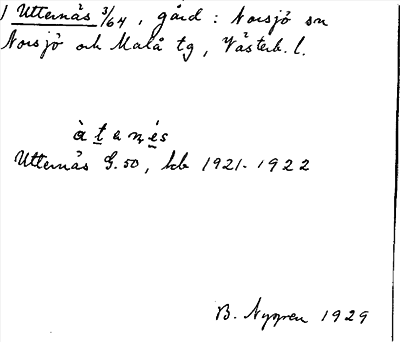 1 Utternäs 3/64, gård: Norsjö sn
Norsjö och Malå tg, Västerb. l.
àtanés
Utternäs G.50, kb 1921-1922
B. Nygren 1929